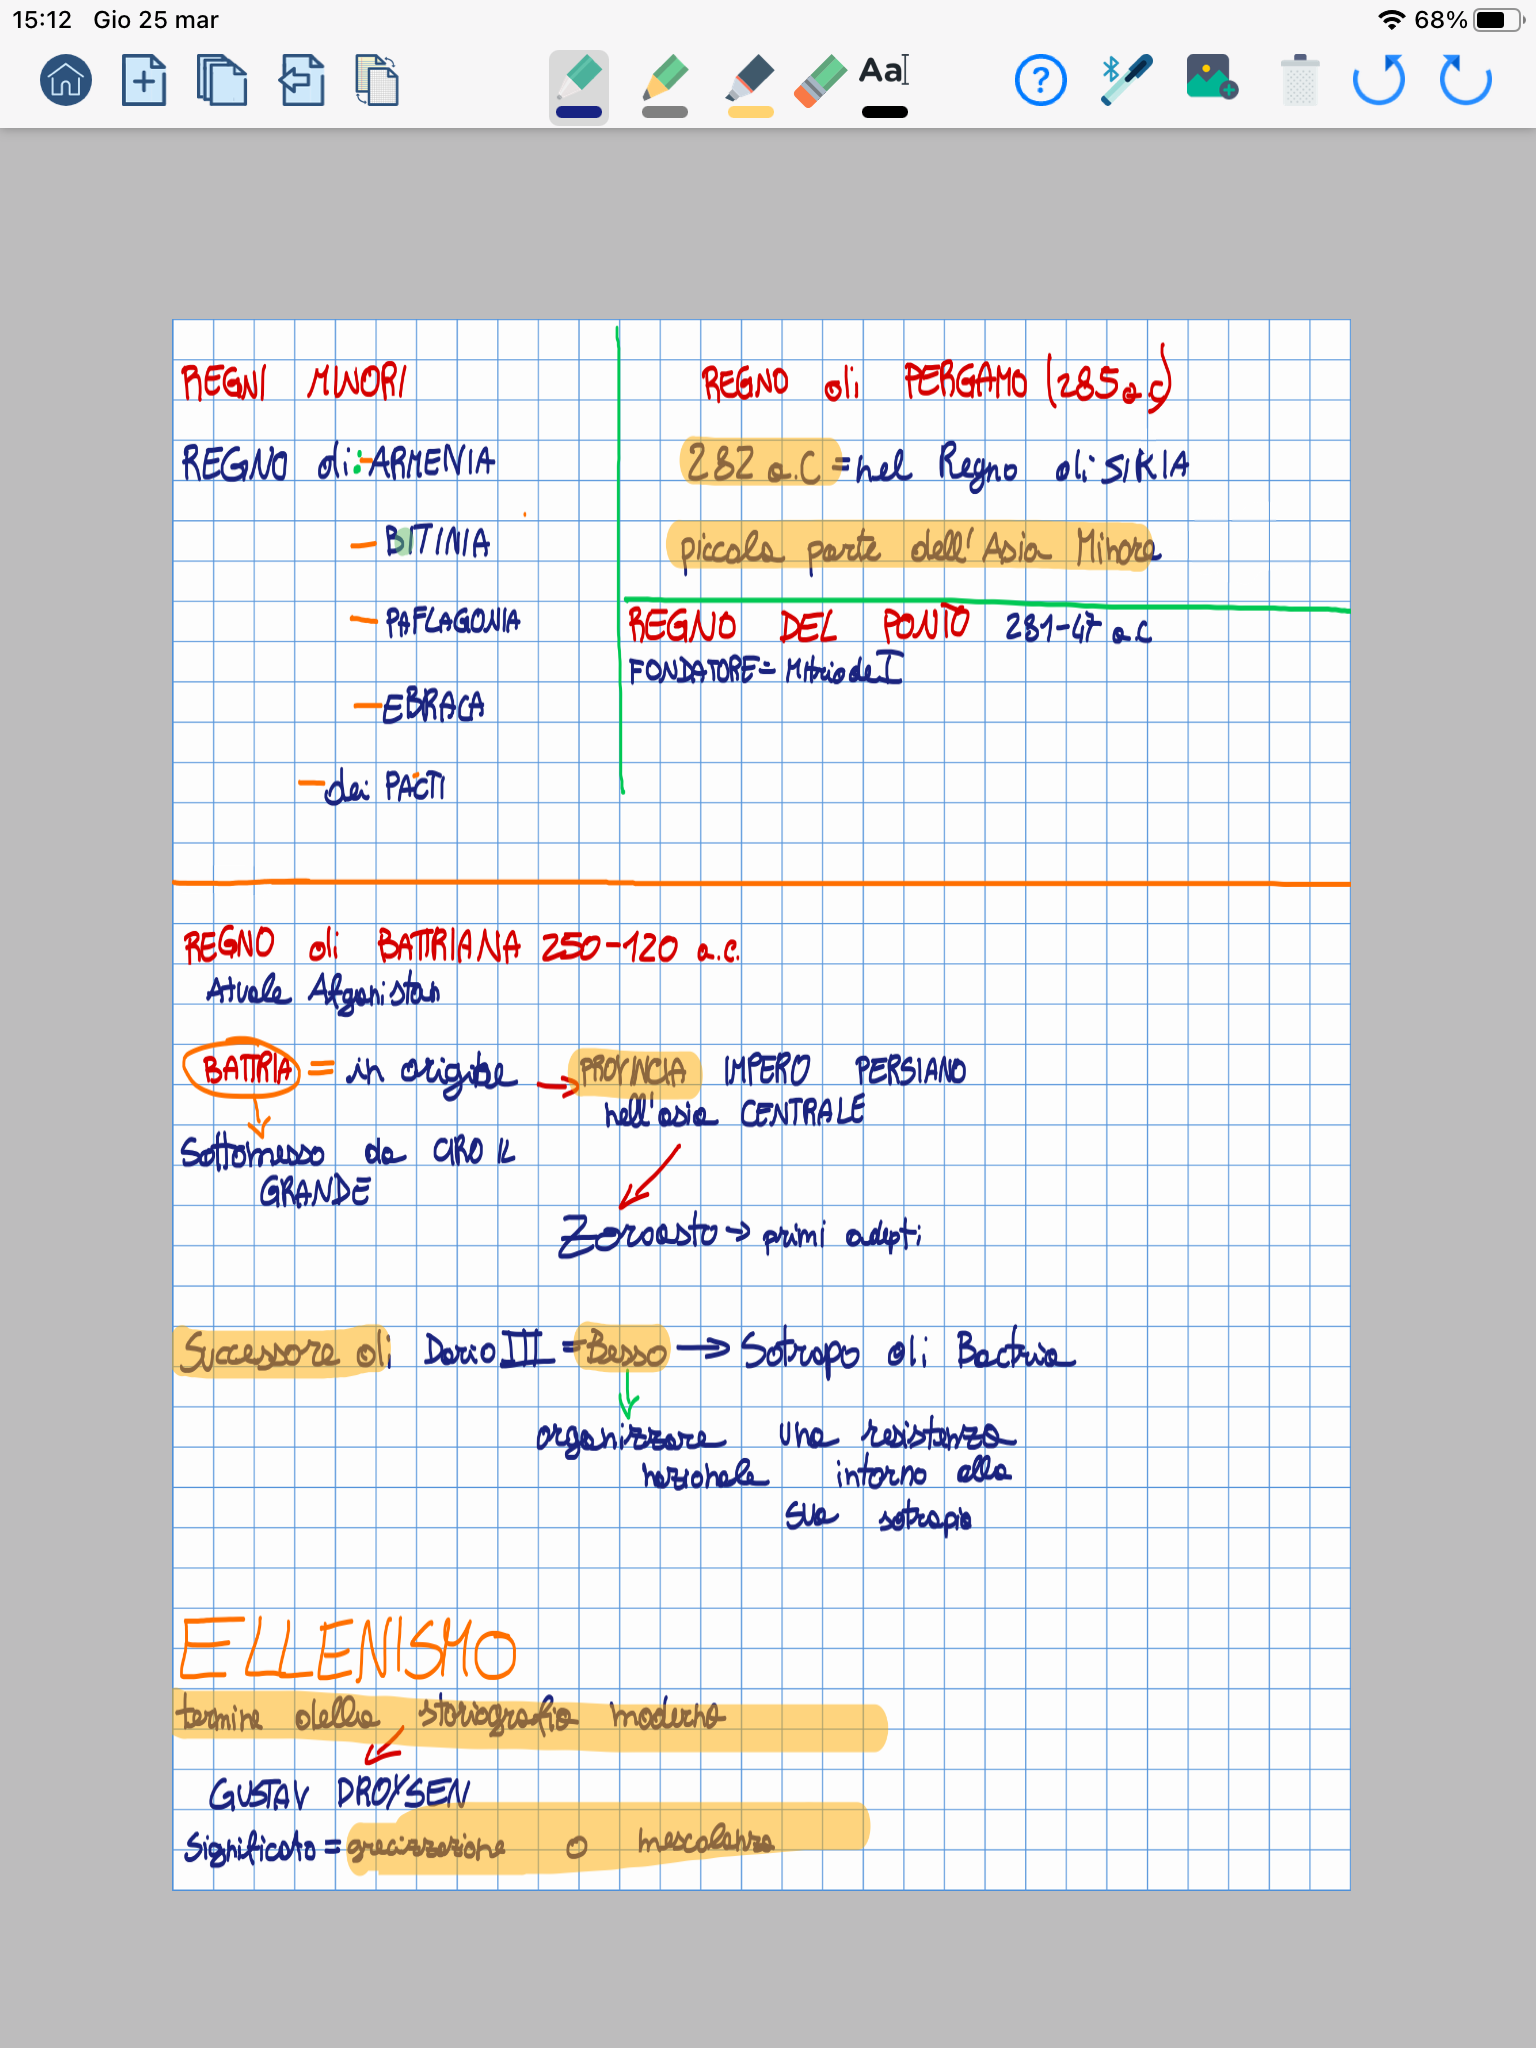 15:12 Gio 25 mar
68%
Aa
?
REGNI MINORI
REGNO di: - ARMENIA
- BITINIA
- PAFLAGONIA
- EBRACA
- dei PACTI
REGNO di PERGAMO (285 a.C)
282 a.C = nel Regno di SIKIA
piccola parte dell'Asia Minore
REGNO DEL PONTO 281-47 a.C
FONDATORE = Mitriode I
REGNO di BATTRIANA 250-120 a.C.
Atuale Afganistan
BATTRIA = in origine → PROVINCIA IMPERO PERSIANO
nell'asia CENTRALE
Sottomesso da CIRO IL
GRANDE
Zoroasto → primi adepti
Successore di Dario III = Besso → Satrapo di Bactria
organizzare una resistenza
nazionale intorno alla
sua satrapia
ELLENISMO
termine della storiografia moderna
GUSTAV DROYSEN
Significato = grecizzazione o mescolanza